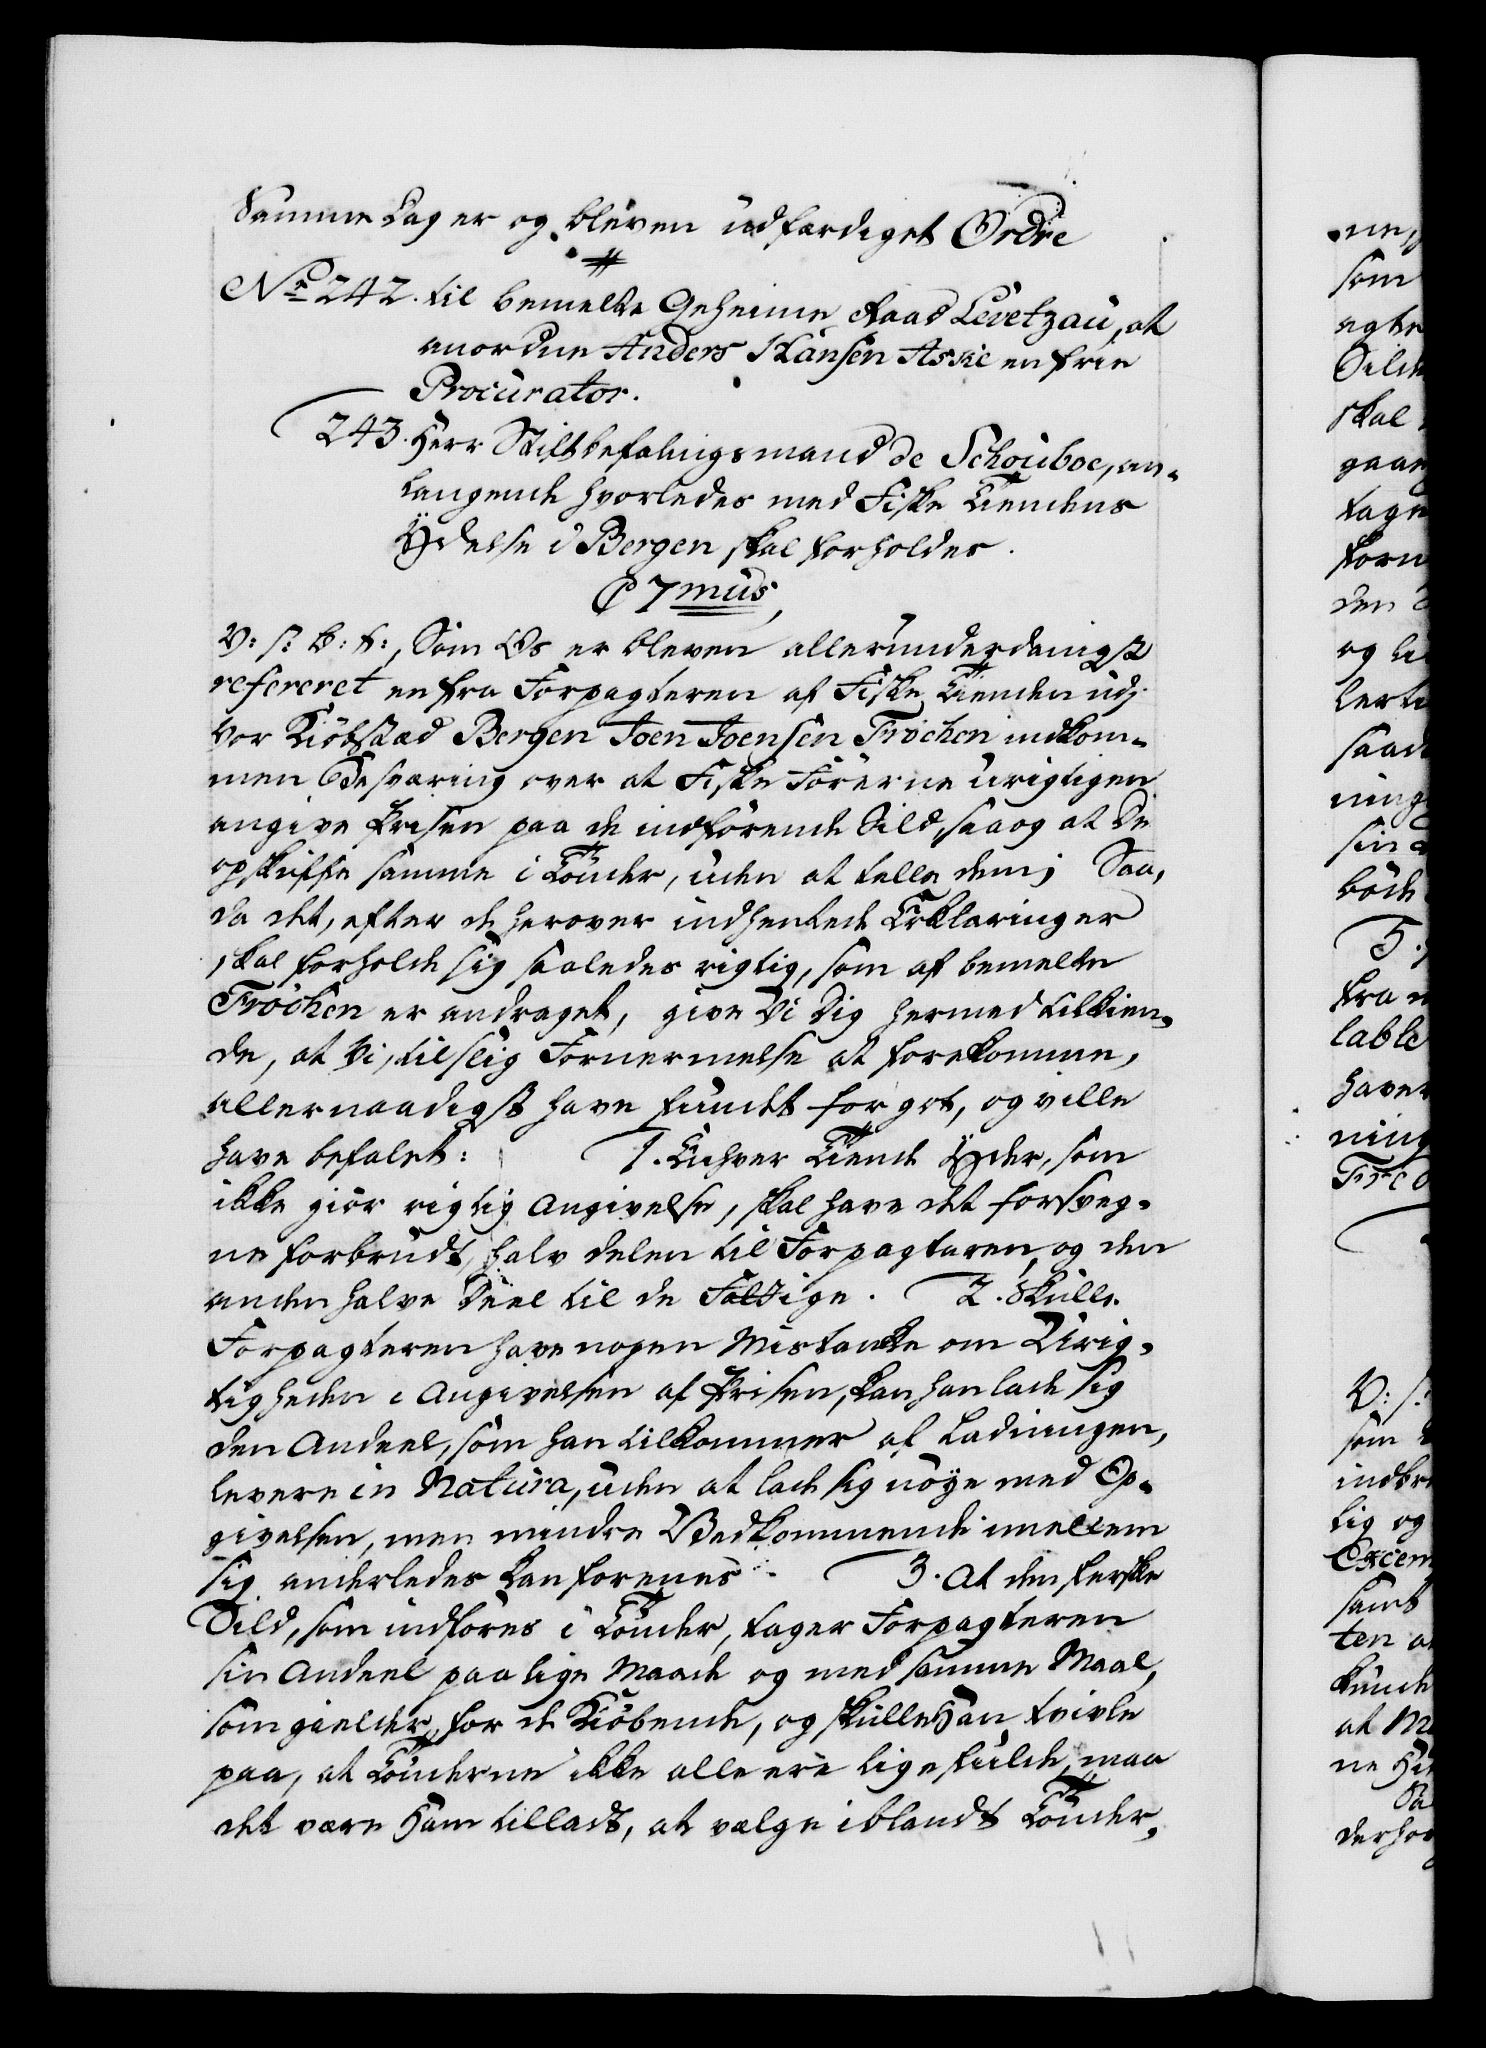 Samme Dag er og bleven udfærdiget Ordre
No 242. til bemelte Geheime Raad Levetzau, at
anordne Anders Hansen Askie en frie
Procurator.
243. Herr Stiftbefalingsmand de Schouboe, an-
langende hvorledes med Fiske Tiendens
Ydelse i Bergen skal forholdes.
C 7mus,
V: S: B: T:, Som Os er bleven allerunderdanigst
refereret en fra Forpagteren af Fiske Tienden udj
vor Kiöbstæd Bergen Joen Joensen Fröchen indkom-
men Besværing over at Fiske Förerne urigtigen
angive Prisen paa de indförende Sild, saa og at De
opskiffe samme i Tönder, uden at telle dem; Saa,
da det, efter de herover indhentede Erklæringer
skal forholde sig saaledes rigtig, som af bemelte
Fröchen er andraget, give Vi Dig hermed tilkien-
de, at Vi, til slig Fornermelse at forekomme,
allernaadigst have fundet for got, og ville
have befalet: 1. Enhver Tiende Yder, som
ikke giör rigtig Angivelse, skal have det forsveg-
ne forbrudt, halv delen til Forpagteren, og den
anden halve Deel til de Fattige. 2. Skulle
Forpagteren have nogen Mistanke om Urig-
tigheden i Angivelsen af Prisen, kan han lade sig
den Andeel, som han tilkommer af Ladningen,
levere in Natura, uden at lade sig nöye med Op-
givelsen, men mindre Vedkommende imellem
sig anderledes kan forenes. 3. At den ferske
Sild, som indföres i Tönder, tager Forpagteren
sin Andeel paa lige Maade og med samme Maal,
som gielder for de Kiöbende, og skulle Han tvivle
paa, at Tönderne ikke alle ere lige fulde, maa
det være Ham tilladt, at vælge iblandt Tönder,